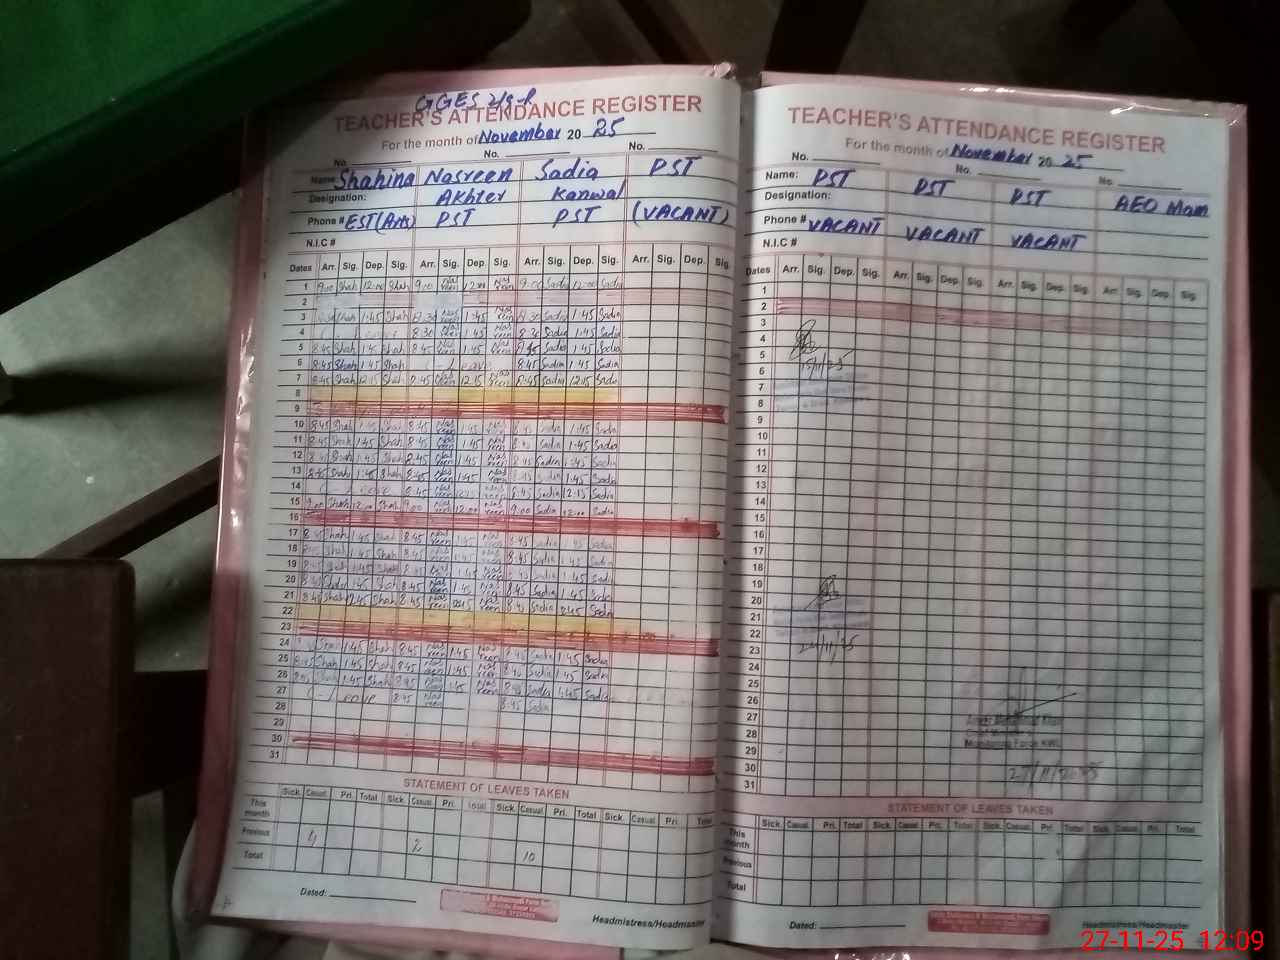 GGES
TEACHER'S ATTENDANCE REGISTER
For the month of November 2025
No. No. No.
Name: Shahina Nasreen Sadia PST
Designation: Akhter Kanwal
Phone # EST (Arts) PST PST (VACANT)
N.I.C #
Dates Arr. Sig. Dep. Sig. Arr. Sig. Dep. Sig. Arr. Sig. Dep. Sig. Arr. Sig. Dep. Sig.
1 9:00 Shah 12:00 Shah 9:00 Nasreen 12:00 Nasreen 9:00 Sadia 12:00 Sadia
2
3 1:45 Shah 8:30 Nasreen 1:45 Nasreen 8:30 Sadia 1:45 Sadia
4 8:30 Nasreen 1:45 Nasreen 8:30 Sadia 1:45 Sadia
5 8:45 Shah 1:45 Shah 8:45 Nasreen 1:45 Nasreen 8:45 Sadia 1:45 Sadia
6 8:45 Shah 1:45 Shah 8:45 Sadia 1:45 Sadia
7 8:45 Shah 12:15 Shah 8:45 Nasreen 12:15 Nasreen 8:45 Sadia 12:15 Sadia
8
9
10 8:45 Shah 1:45 Shah 8:45 Nasreen 1:45 Nasreen 8:45 Sadia 1:45 Sadia
11 8:45 Shah 1:45 Shah 8:45 Nasreen 1:45 Nasreen 8:45 Sadia 1:45 Sadia
12 8:45 Shah 1:45 Shah 8:45 Nasreen 1:45 Nasreen 8:45 Sadia 1:45 Sadia
13 8:45 Shah 1:45 Shah 8:45 Nasreen 1:45 Nasreen 8:45 Sadia 1:45 Sadia
14 8:45 Nasreen Nasreen 8:45 Sadia 12:15 Sadia
15 9:00 Shah 12:00 Shah 9:00 Nasreen 12:00 Nasreen 9:00 Sadia 12:00 Sadia
16
17 8:45 Shah 1:45 Shah 8:45 Nasreen 1:45 Nasreen 8:45 Sadia 1:45 Sadia
18 8:45 Shah 1:45 Shah 8:45 Nasreen 1:45 Nasreen 8:45 Sadia 1:45 Sadia
19 8:45 Shah 1:45 Shah 8:45 Nasreen 1:45 Nasreen 8:45 Sadia 1:45 Sadia
20 8:45 Shah 1:45 Shah 8:45 Nasreen 1:45 Nasreen 8:45 Sadia 1:45 Sadia
21 8:45 Shah 12:45 Shah 8:45 Nasreen Nasreen 8:45 Sadia Sadia
22
23
24 Shah 1:45 Shah 8:45 Nasreen 1:45 Nasreen 8:45 Sadia 1:45 Sadia
25 8:45 Shah 1:45 Shah 8:45 Nasreen 1:45 Nasreen 8:45 Sadia 1:45 Sadia
26 8:45 Shah 1:45 Shah 8:45 Nasreen 1:45 Nasreen 8:45 Sadia 1:45 Sadia
27 Leave 8:45 Nasreen 8:45 Sadia
28
29
30
31
STATEMENT OF LEAVES TAKEN
Sick. Casual. Pri. Total Sick. Casual. Pri. Total Sick. Casual. Pri. Total Sick. Casual. Pri. Total
This month
Previous 4 2 10
Total
Dated:
Headmistress/Headmaster
TEACHER'S ATTENDANCE REGISTER
For the month of November 2025
No. No. No.
Name: PST PST PST AEO Mam
Designation:
Phone # VACANT VACANT VACANT
N.I.C #
Dates Arr. Sig. Dep. Sig. Arr. Sig. Dep. Sig. Arr. Sig. Dep. Sig. Arr. Sig. Dep. Sig.
1
2
3
4
5
6
7
8
9
10
11
12
13
14
15
16
17
18
19
20
21
22
23
24
25
26
27
28
29
30
31
27/11/2025
STATEMENT OF LEAVES TAKEN
Sick. Casual. Pri. Total Sick. Casual. Pri. Total Sick. Casual. Pri. Total Sick. Casual. Pri. Total
This month
Previous
Total
Dated:
Headmistress/Headmaster
27-11-25 12:09